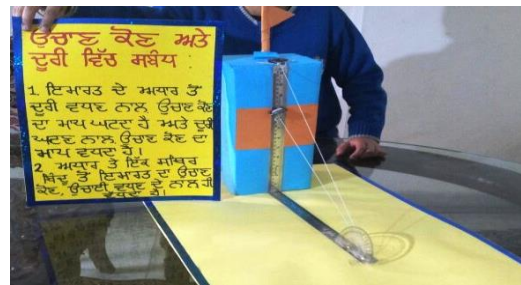 ਉਚਾਣ ਕੋਣ ਅਤੇ
ਦੂਰੀ ਵਿੱਚ ਸਬੰਧ
1. ਇਮਾਰਤ ਦੇ ਅਧਾਰ ਤੋਂ
ਦੂਰੀ ਵਧਣ ਨਾਲ ਉਚਾਣ ਕੋਣ
ਦਾ ਮਾਪ ਘਟਦਾ ਹੈ ਅਤੇ ਦੂਰੀ
ਘਟਣ ਨਾਲ ਉਚਾਣ ਕੋਣ ਦਾ
ਮਾਪ ਵਧਦਾ ਹੈ।
2 ਅਧਾਰ ਤੇ ਇੱਕ ਸਥਿਰ
ਬਿੰਦੂ ਤੋਂ ਇਮਾਰਤ ਦਾ ਉਚਾਣ
ਕੋਣ, ਉਚਾਈ ਵਧਣ ਦੇ ਨਾਲ ਹੀ
ਵਧਦਾ ਹੈ।